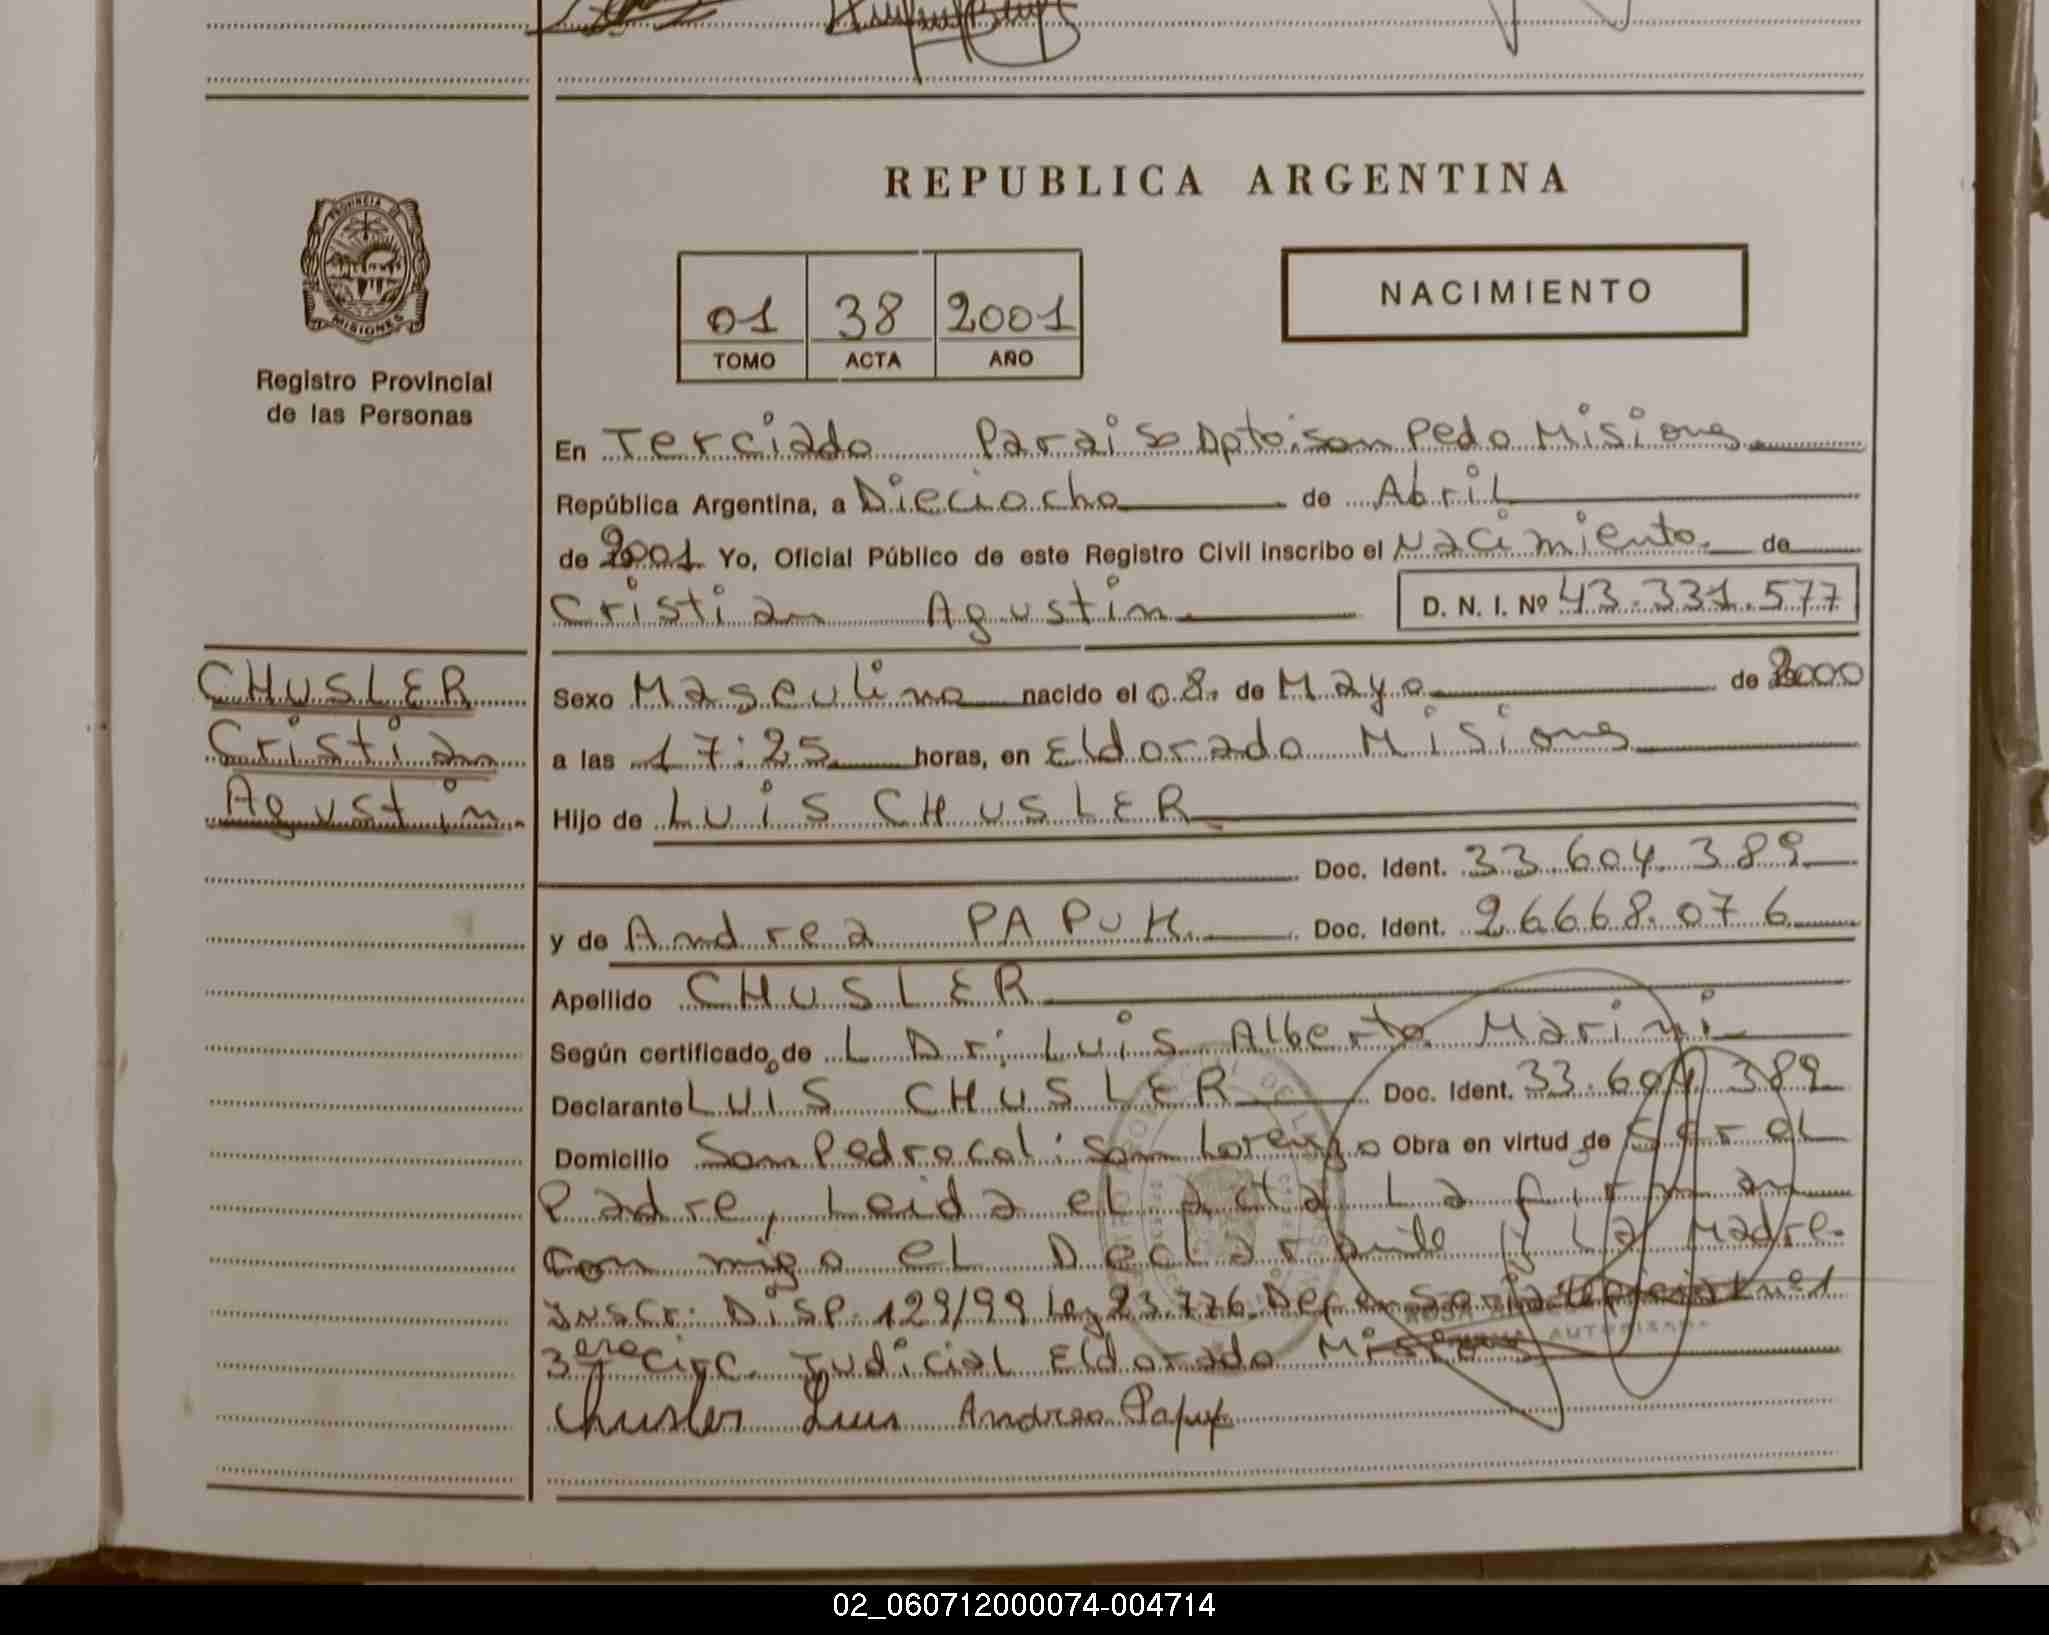 REPUBLICA ARGENTINA
PROVINCIA DE
MISIONES
Registro Provincial
de las Personas
01 38 2001
TOMO ACTA AÑO
NACIMIENTO
En Terciado Paraiso Dpto: san Pedo Misiones
República Argentina, a Dieciocho de Abril
de 2001 Yo, Oficial Público de este Registro Civil inscribo el Nacimiento de
Cristian Agustin D. N. I. Nº 43.331.577
CHUSLER
Cristian
Agustin
Sexo Masculino nacido el 08. de Mayo de 2000
a las 17:25 horas, en Eldorado Misiones
Hijo de LUIS CHUSLER
Doc. Ident. 33.604.389
y de Andrea PAPUK Doc. Ident. 26668.076
Apellido CHUSLER
Según certificado de L Dr; Luis Alberto Marini
Declarante LUIS CHUSLER Doc. Ident. 33.604.389
Domicilio San Pedro col: san Lorenzo Obra en virtud de ser el
Padre, Leida el acta La firman
con migo el Declarante y La Madre.
Inscr: DISP. 129/99 Ley 23.776. Defensoria Nº1
3era circ. Judicial Eldorado Misiones
AUTORIZADA
Chusler Luis Andrea Papuk
02_060712000074-004714